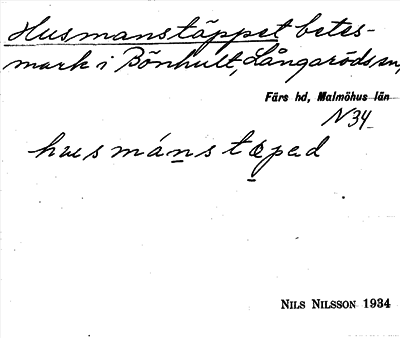 Husmanstäppet betes-
mark i Bönhult, Långaröds sn,
Färs hd, Malmöhus län
N34
husmánstæped
NILS NILSSON 1934